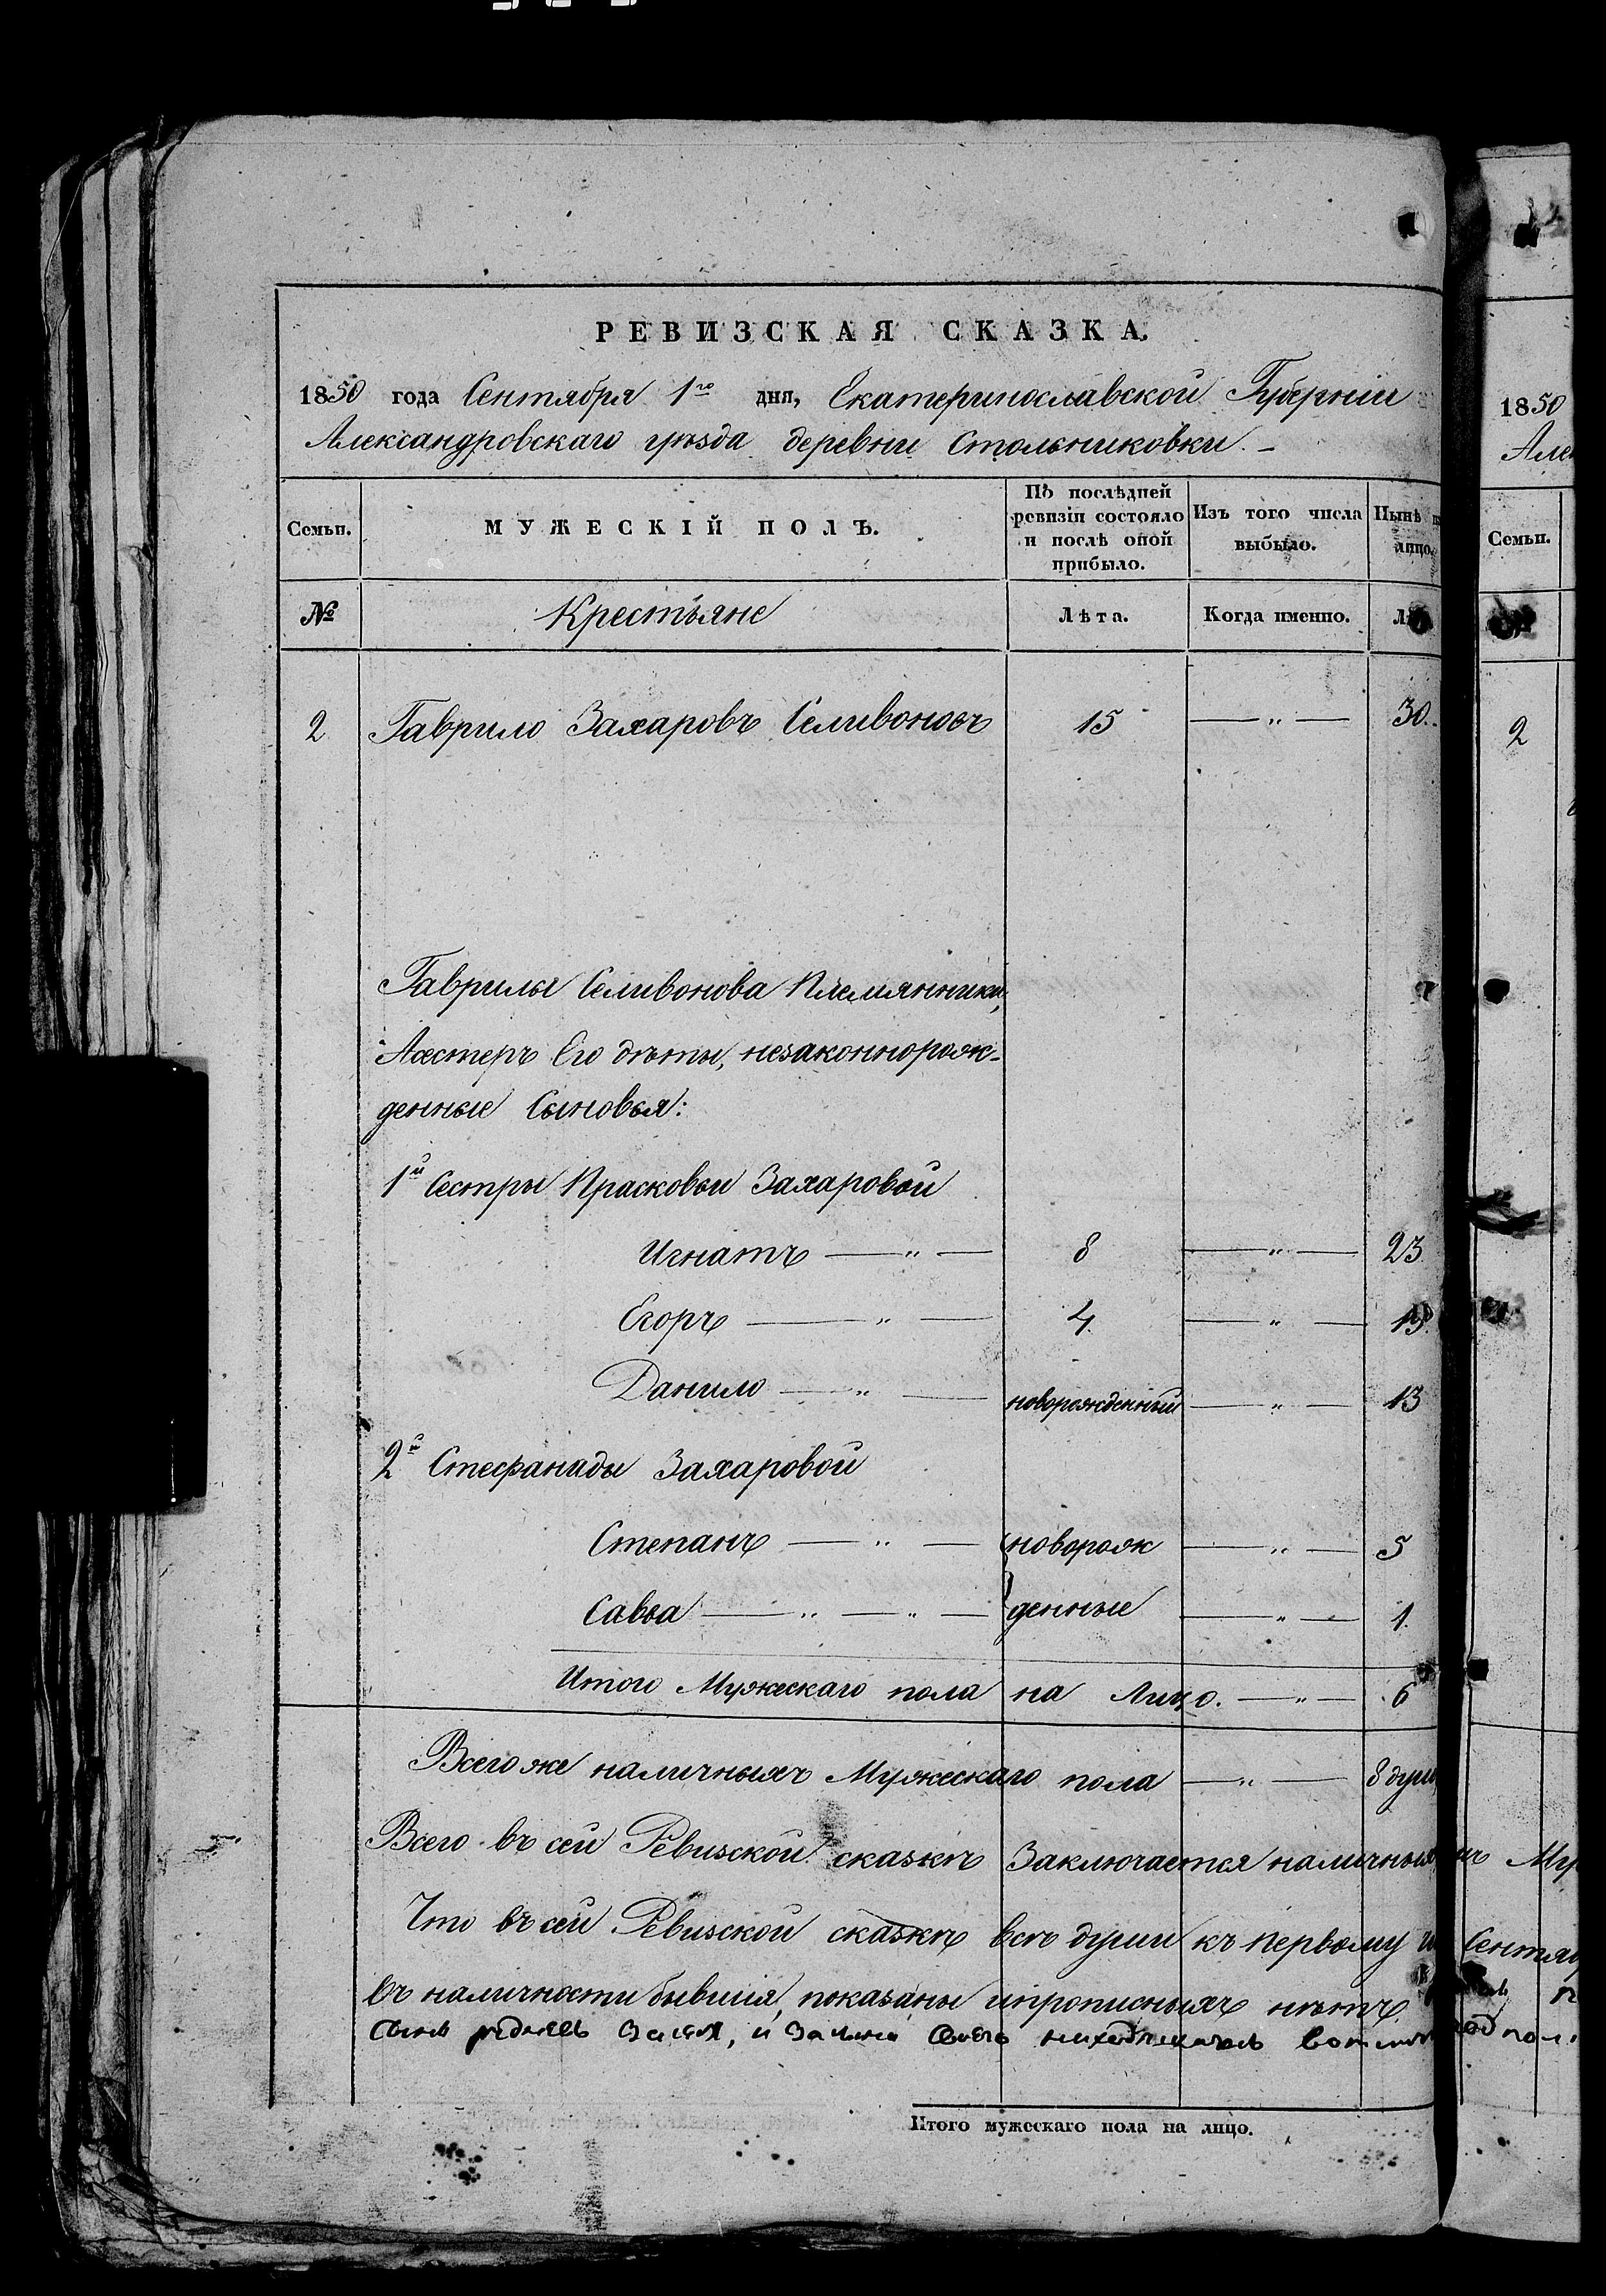 РЕВИЗСКАЯ СКАЗКА.
1850 года Сентября 1го дня, Екатеринославской Губерніи
Александровскаго уѣзда деревни Стольниковки. -
Семьи.
МУЖЕСКІЙ ПОЛЪ.
По послѣдней ревизіи состояло и послѣ оной прибыло.
Изъ того числа выбыло.
Нынѣ на лицо.
№ Крестьяне Лѣта. Когда именно.
2 Гаврило Захаровъ Селивоновъ 15 — „ — 30.
Гаврилы Селивонова Племянники,
Асестеръ Его дѣти, незаконнорож-
денные Сыновья:
1й Сестры Прасковьи Захаровой
Игнатъ — „ — 8 — „ — 23
Егоръ — „ — 4. — „ — 19.
Данило — „ — новорожденный — „ — 13
2й Стефаниды Захаровой
Степанъ — „ — новорож — „ — 5
Савва — „ — „ — денные — „ — 1.
Итого Мужескаго пола на Лицо. — „ — 6
Всего же наличныхъ Мужескаго пола — „ — 8 душ
Всего въ сей Ревизской сказкѣ Заключается наличныхъ
Что въ сей Ревизской сказкѣ всѣ души къ первому
въ наличности бывшія, показаны и прописныхъ нѣтъ
Итого мужескаго пола на лицо.
1850
Алек
Семьи.
2
Му
Сентяб